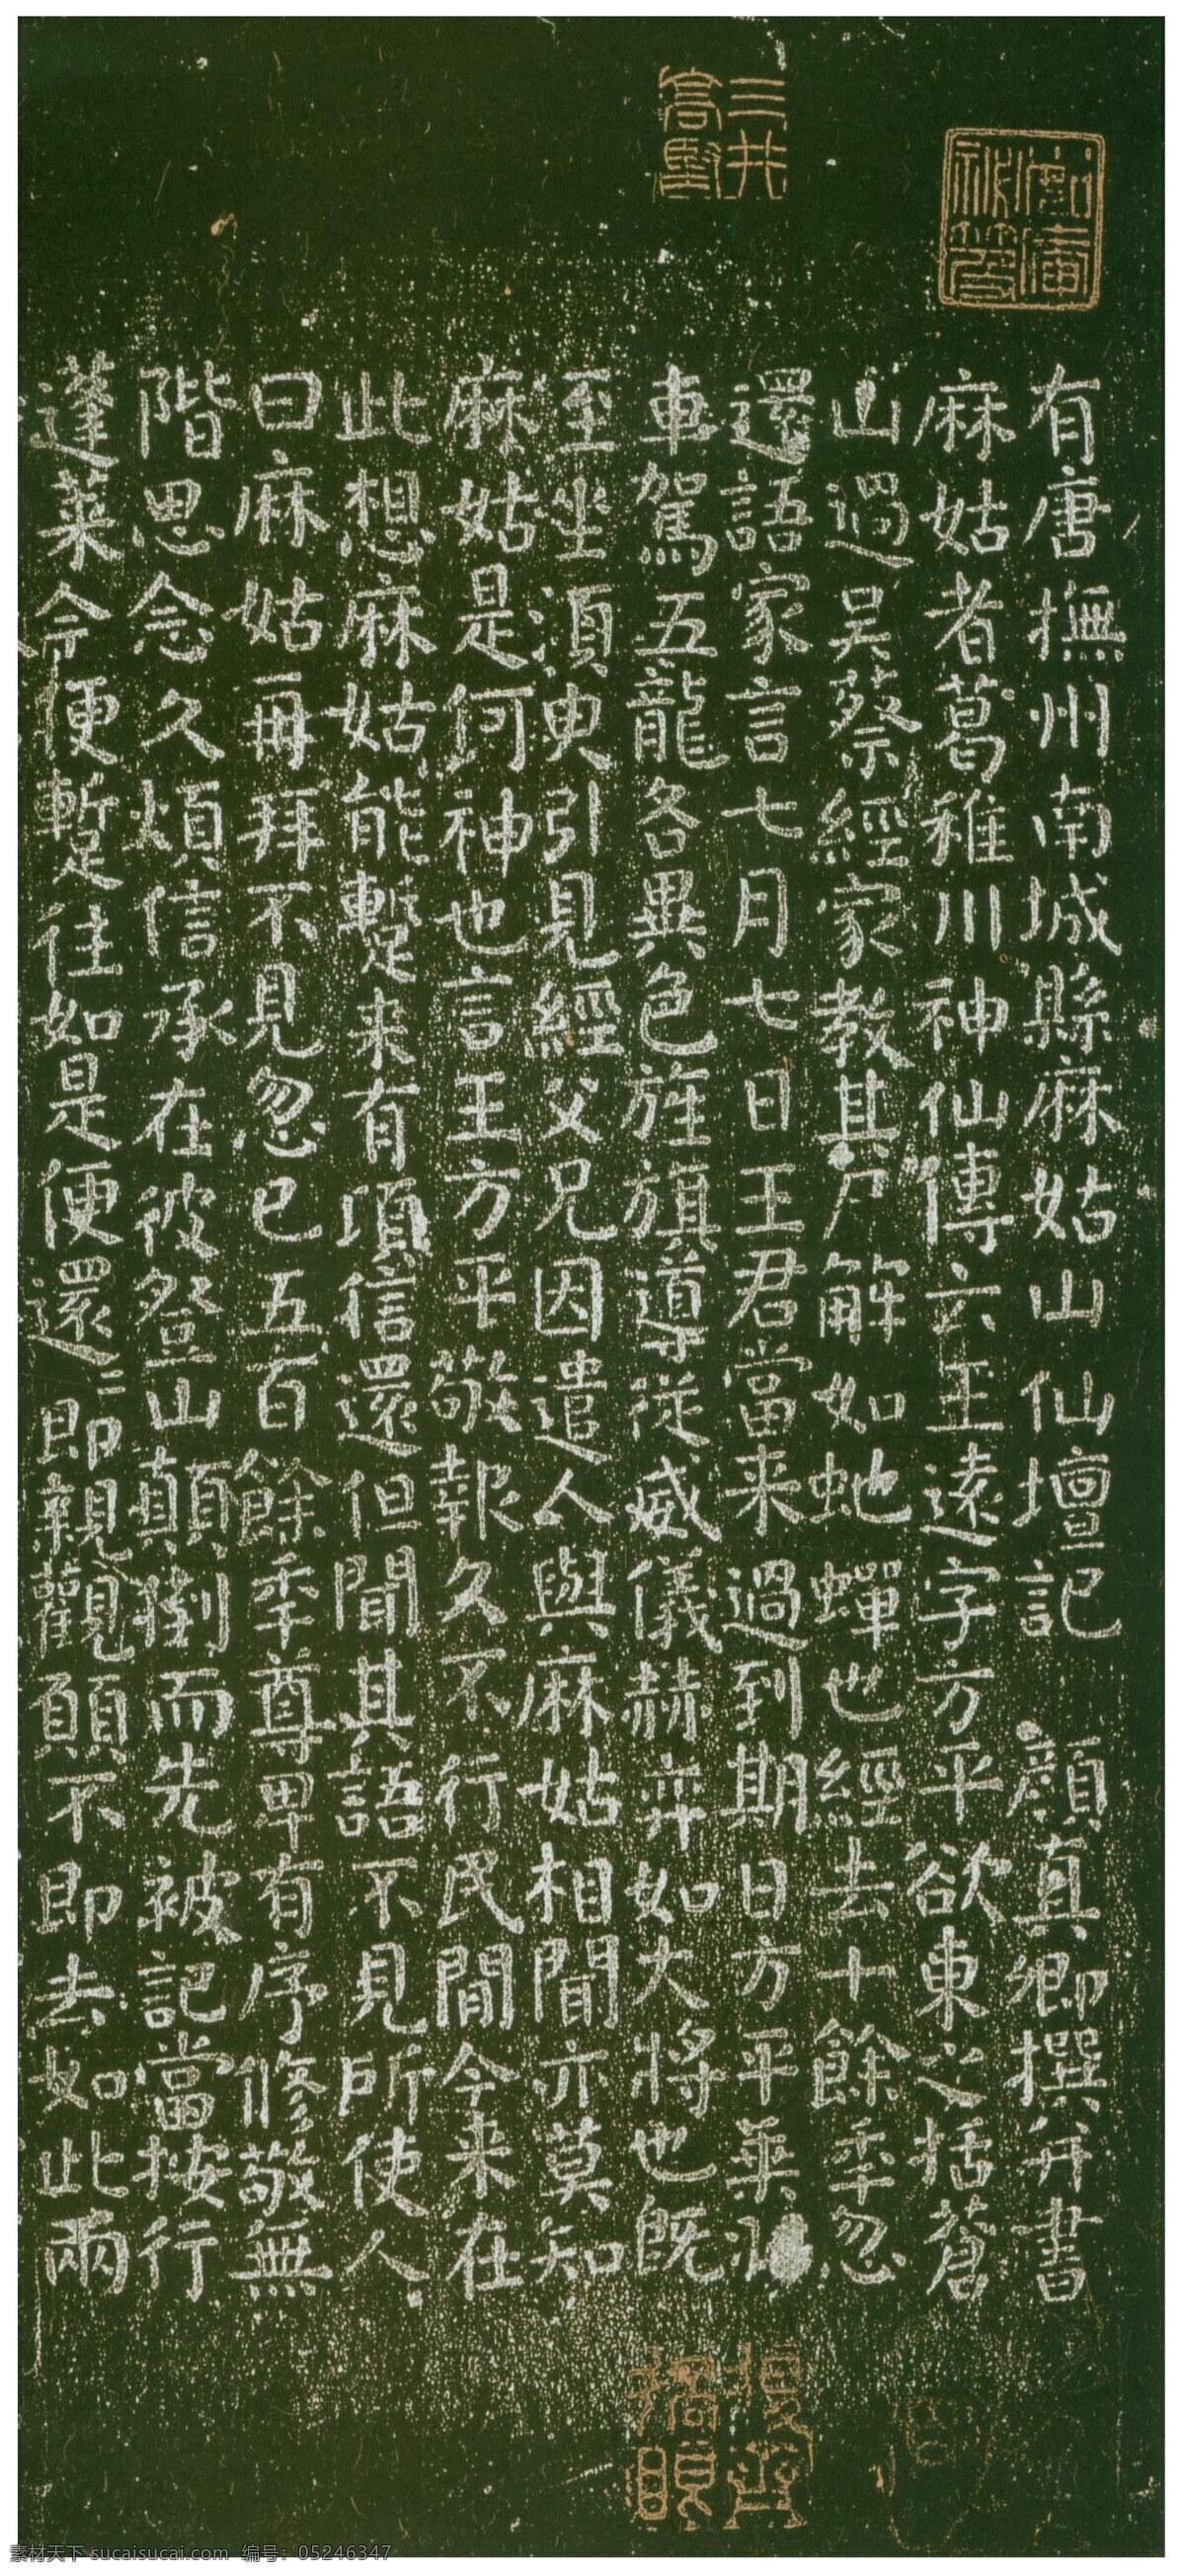 有唐撫州南城縣麻姑山仙壇記 顏真卿撰并書
麻姑者葛稚川神仙傳云王遠字方平欲東之括蒼
山過吳蔡經家教其尸解如虵蟬也經去十餘年忽
還語家言七月七日王君當来過到期日方平乘
車駕五龍各異色旌旗導從威儀赫弈如大將也既
至坐須臾引見經父兄因遣人與麻姑相聞亦莫知
麻姑是何神也言王方平敬報久不行民間今来在
此想麻姑能蹔来有頃信還但聞其語不見所使人
曰麻姑再拜不見忽已五百餘年尊卑有序修敬無
階思念久煩信承在彼登山顛倒而先被記當按行
蓬萊今便蹔往如是便還還即親觀願不即去如此兩
三井
高堅
素材天下 sucaisucai.com 编号：05246347